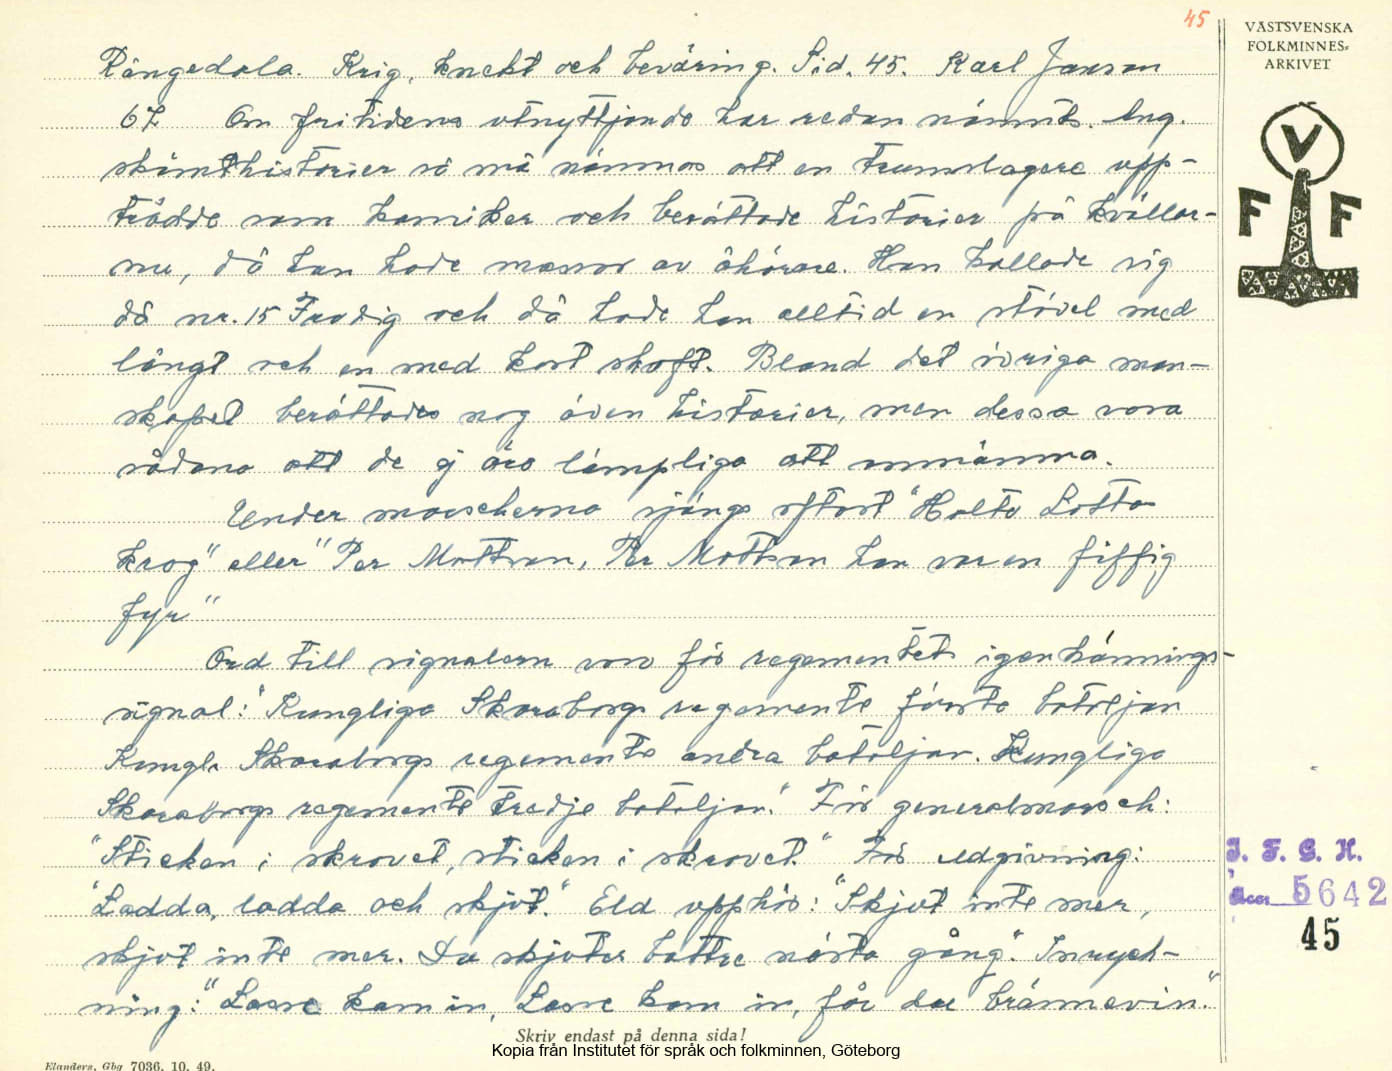 45
VÄSTSVENSKA
FOLKMINNES-
ARKIVET
V
F F
Rångedala. Krig, knekt och beväring. Sid. 45. Karl Janson
67 Om fritidens utnyttjande har redan nämnts. Ang.
skämthistorier så må nämnas att en trumslagare upp-
trädde som komiker och berättade historier på kvällar-
na, då han hade massor av åhörare. Han kallade sig
då nr. 15 Frodig och då hade han alltid en stövel med
långt och en med kort skaft. Bland det övriga man-
skapet berättades nog även historier, men dessa voro
sådana att de ej äro lämpliga att omnämna.
Under marscherna sjöngs oftast "Halta Lottas
krog" eller "Per Mattsson, Per Mattson han var en fiffig
fyr"
Ord till signalern voro för regementets igenkännings-
signal: "Kungliga Skaraborgs regemente första bataljon
Kungl. Skaraborgs regemente andra bataljon. Kungliga
Skaraborgs regemente tredje bataljon." För generalmarsch:
"Sticken i skrovet, sticken i skrovet." För eldgivning:
"Ladda, ladda och skjut." Eld upphör: "Skjut inte mer,
skjut inte mer. Du skjuter bättre nästa gång." Inryck-
ning: "Lasse kom in, Lasse kom in, får du brännevin."
I. F. G. H.
Acc. 5642
45
Skriv endast på denna sida!
Kopia från Institutet för språk och folkminnen, Göteborg
Elanders, Gbg 7036. 10. 49.